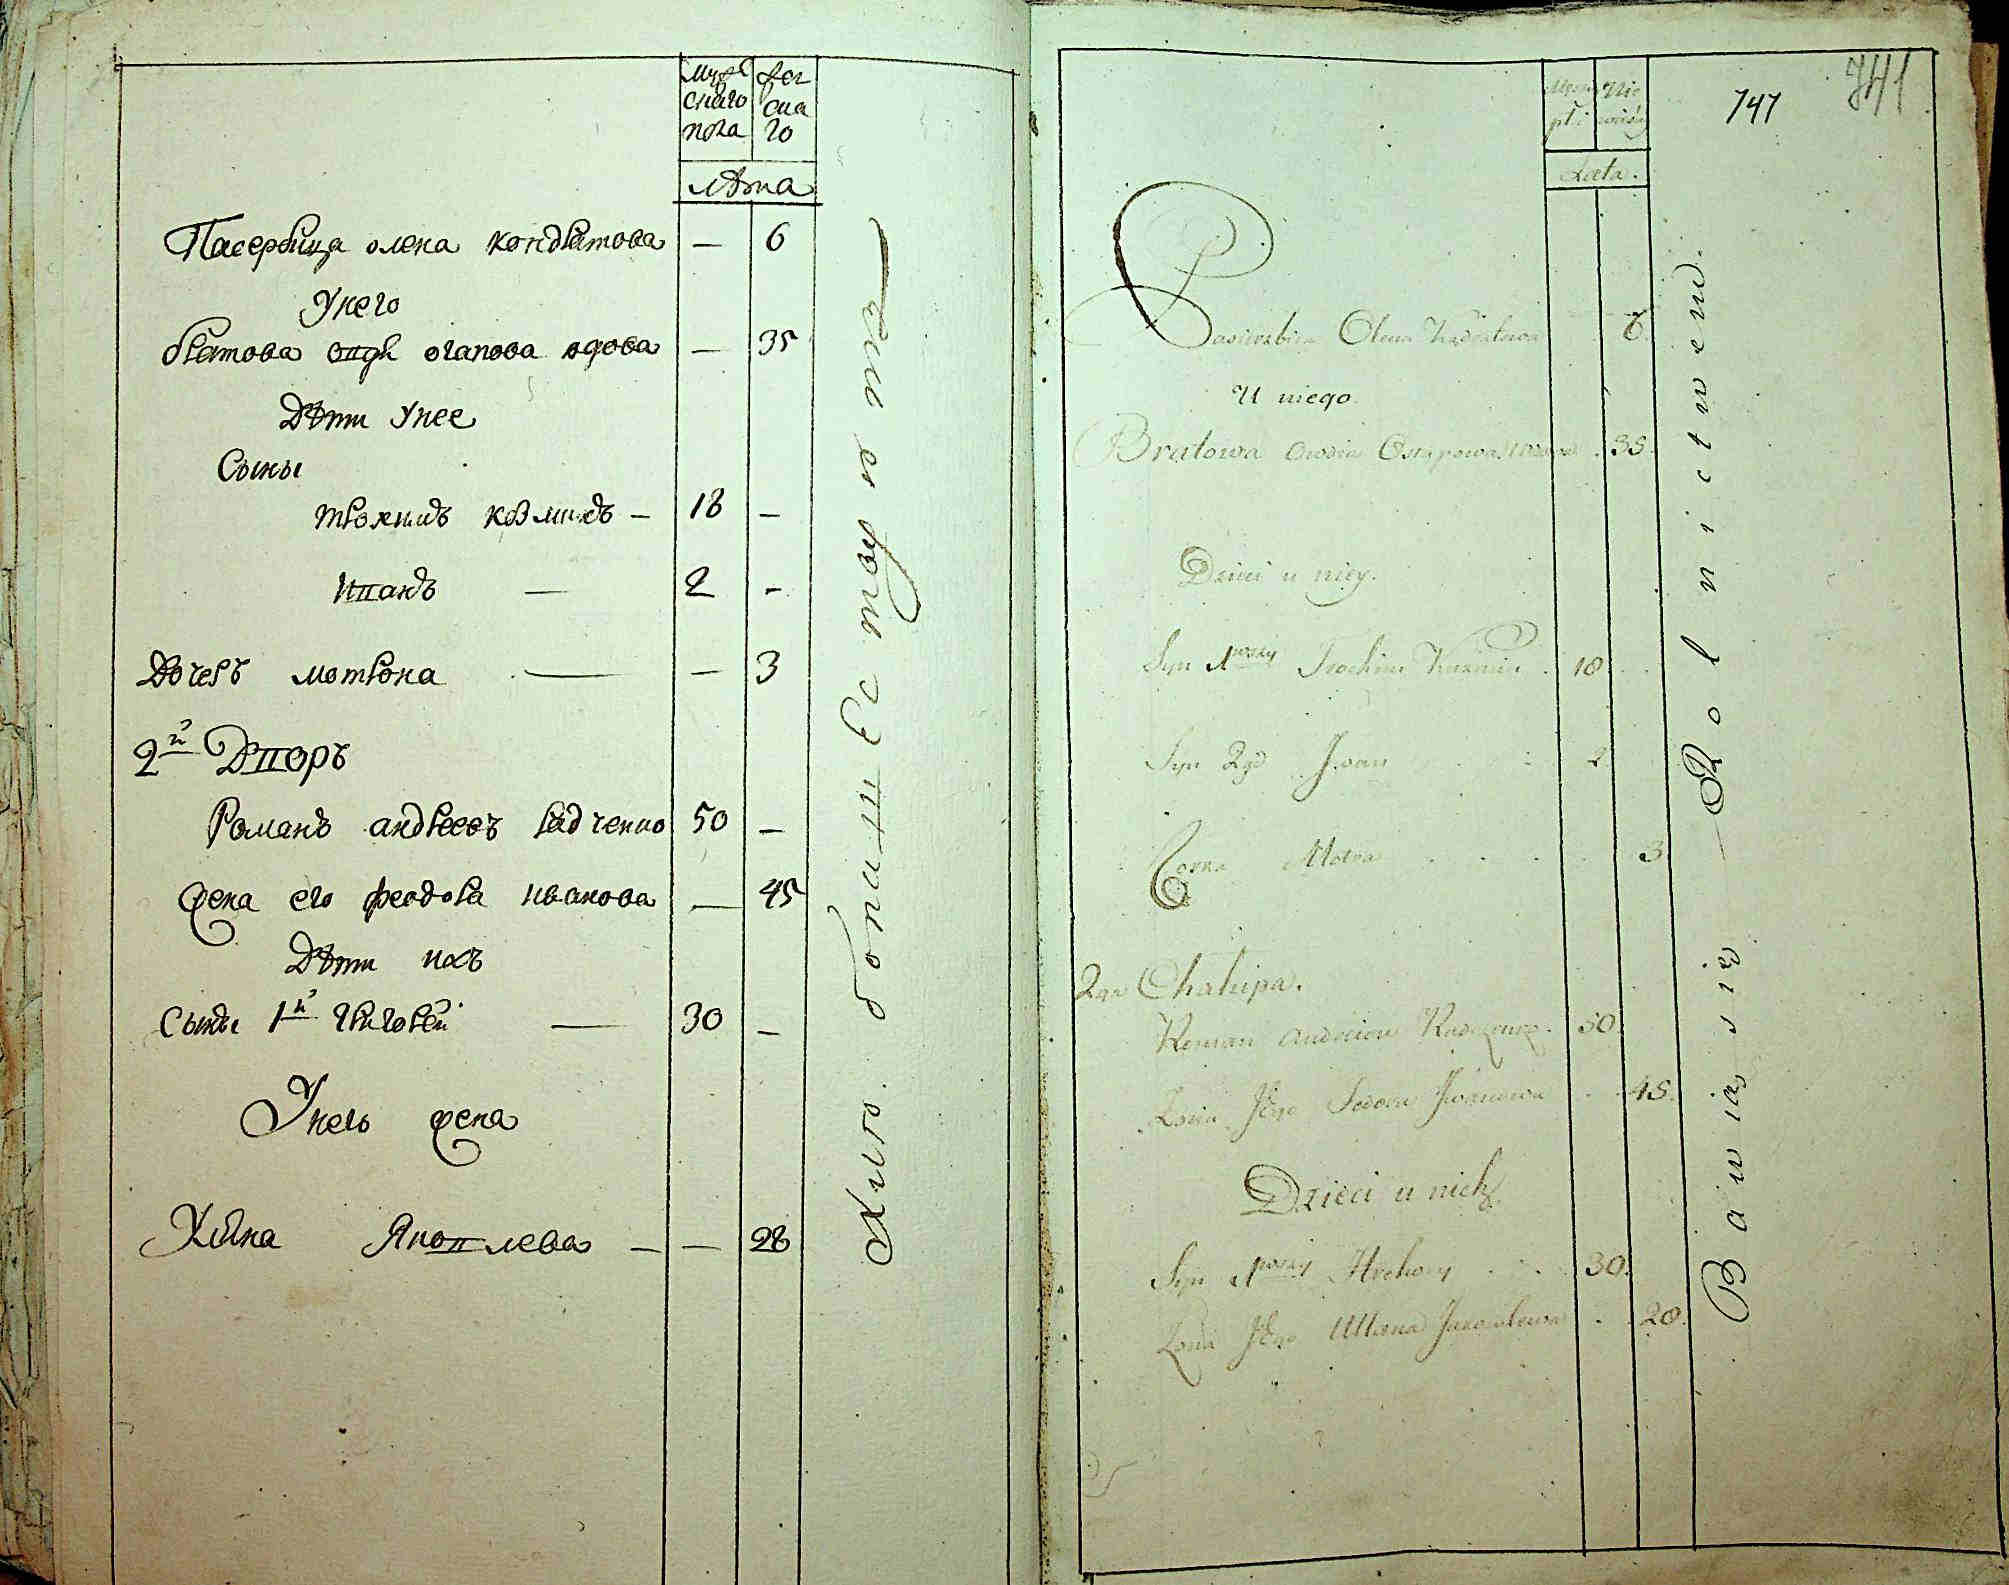 мужескаго пола
женскаго
лѣта
Пасербица олена кондратова — 6
У него
братова овдя остапова вдова — 35
Дѣти у нее
Сыны
трохимъ козминъ — 18 —
иванъ — 2 —
Дочеръ мотрона — — 3
2й Дворъ
Романъ андреевъ радченко 50 —
жена его феодора иванова — 45
Дѣти ихъ
Сынъ 1й григорей — 30 —
У него жена
Улиана Яковлева — — 28
747
741
Lata.
Pasierzbica Olena Kądratowa 6.
U niego.
Bratowa Owdia Ostapowa Wdowa . 35.
Dzieci u niey.
Syn 1wszy Trochim Kuzmin . 18.
Syn 2gi Jwan 2
Corka Motra . . . . 3.
2ga Chałupa.
Roman Andreiew Radczenko . 50.
Zona Jego Fedora Jwanowa . . 45.
Dzieci u nich
Syn 1wszy Hrehory . . . 30.
Zona Jego Ulłana Jakowlewa . . 28.
Bawią się Rolnictwem.